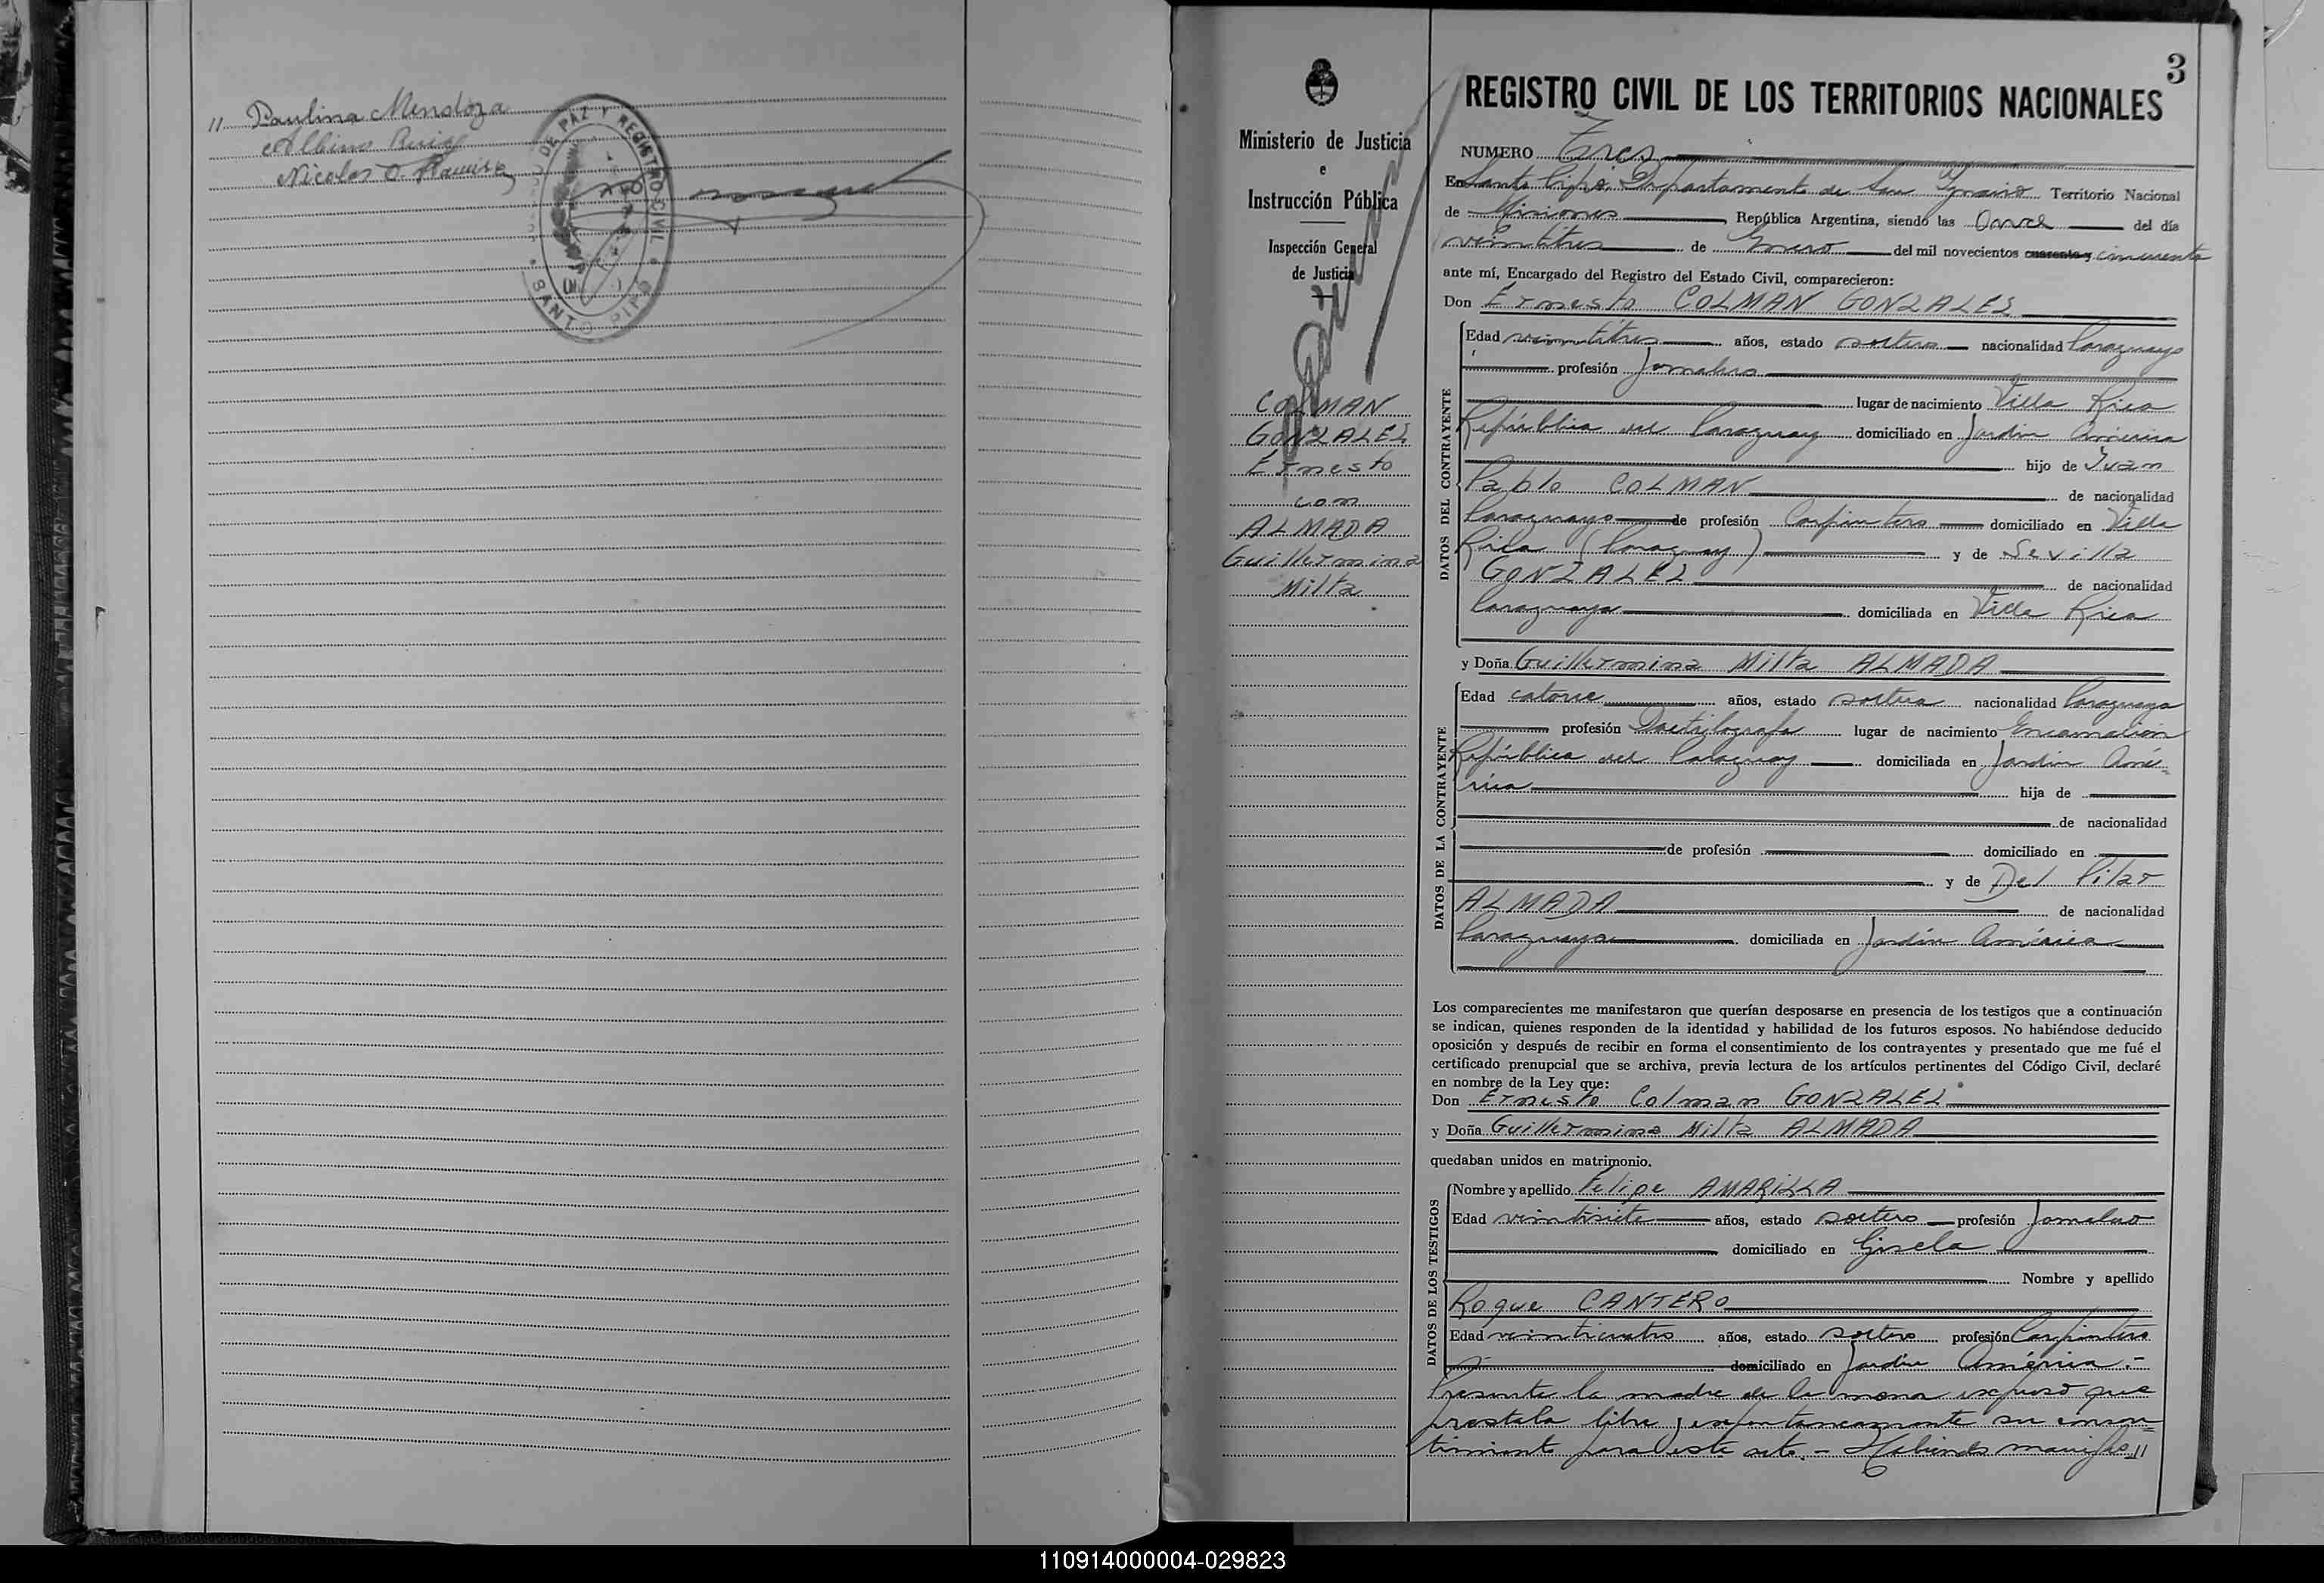 " Paulina Mendoza
Albino Ruiz
Nicolas O. Ramirez
DE PAZ Y REGISTRO CIVIL
SANTO PIPO
3
REGISTRO CIVIL DE LOS TERRITORIOS NACIONALES
Ministerio de Justicia
e
Instrucción Pública
Inspección General
de Justicia
COLMAN
GONZALEZ
Ernesto
con
ALMADA
Guillermina
Milta
NUMERO Tres
En Santo Pipó Departamento de San Ignacio Territorio Nacional
de Misiones República Argentina, siendo las Once del día
veintitres de Enero del mil novecientos cuarenta y cincuenta
ante mí, Encargado del Registro del Estado Civil, comparecieron:
Don Ernesto COLMAN GONZALEZ
DATOS DEL CONTRAYENTE
Edad veintitres años, estado soltero nacionalidad Paraguayo
profesión Jornalero
lugar de nacimiento Villa Rica
República del Paraguay domiciliado en Jardin América
hijo de Juan
Pablo COLMAN de nacionalidad
Paraguayo de profesión Carpintero domiciliado en Villa
Rica (Paraguay) y de Sevilla
GONZALEZ de nacionalidad
Paraguaya domiciliada en Villa Rica
y Doña Guillermina Milta ALMADA
DATOS DE LA CONTRAYENTE
Edad catorce años, estado soltera nacionalidad Paraguaya
profesión Dactilografa lugar de nacimiento Encarnación
República del Paraguay domiciliada en Jardin Amé=
rica hija de
de nacionalidad
de profesión domiciliado en
y de Del Pilar
ALMADA de nacionalidad
Paraguaya domiciliada en Jardin América
Los comparecientes me manifestaron que querían desposarse en presencia de los testigos que a continuación
se indican, quienes responden de la identidad y habilidad de los futuros esposos. No habiéndose deducido
oposición y después de recibir en forma el consentimiento de los contrayentes y presentado que me fué el
certificado prenupcial que se archiva, previa lectura de los artículos pertinentes del Código Civil, declaré
en nombre de la Ley que:
Don Ernesto Colman GONZALEZ
y Doña Guillermina Milta ALMADA
quedaban unidos en matrimonio.
DATOS DE LOS TESTIGOS
Nombre y apellido Felipe AMARILLA
Edad veintisiete años, estado soltero profesión Jornalero
domiciliado en Gisela
Nombre y apellido
Roque CANTERO
Edad veinticuatro años, estado soltero profesión Carpintero
domiciliado en Jardin América.-
Presente la madre de la menor expresó que
prestaba libre y espontaneamente su consen=
timiento para este acto.- Habiendo manifes "
110914000004-029823